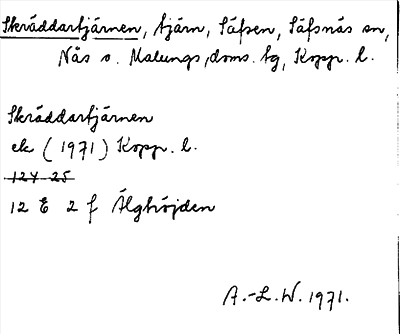 Skräddartjärnen, tjärn, Säfsen, Säfsnäs sn,
Nås o. Malungs, doms. tg, Kopp. l.
Skräddartjärnen
ek (1971) Kopp. l.
124-25
12 E 2 f Älghöjden
A.-L.W. 1971.